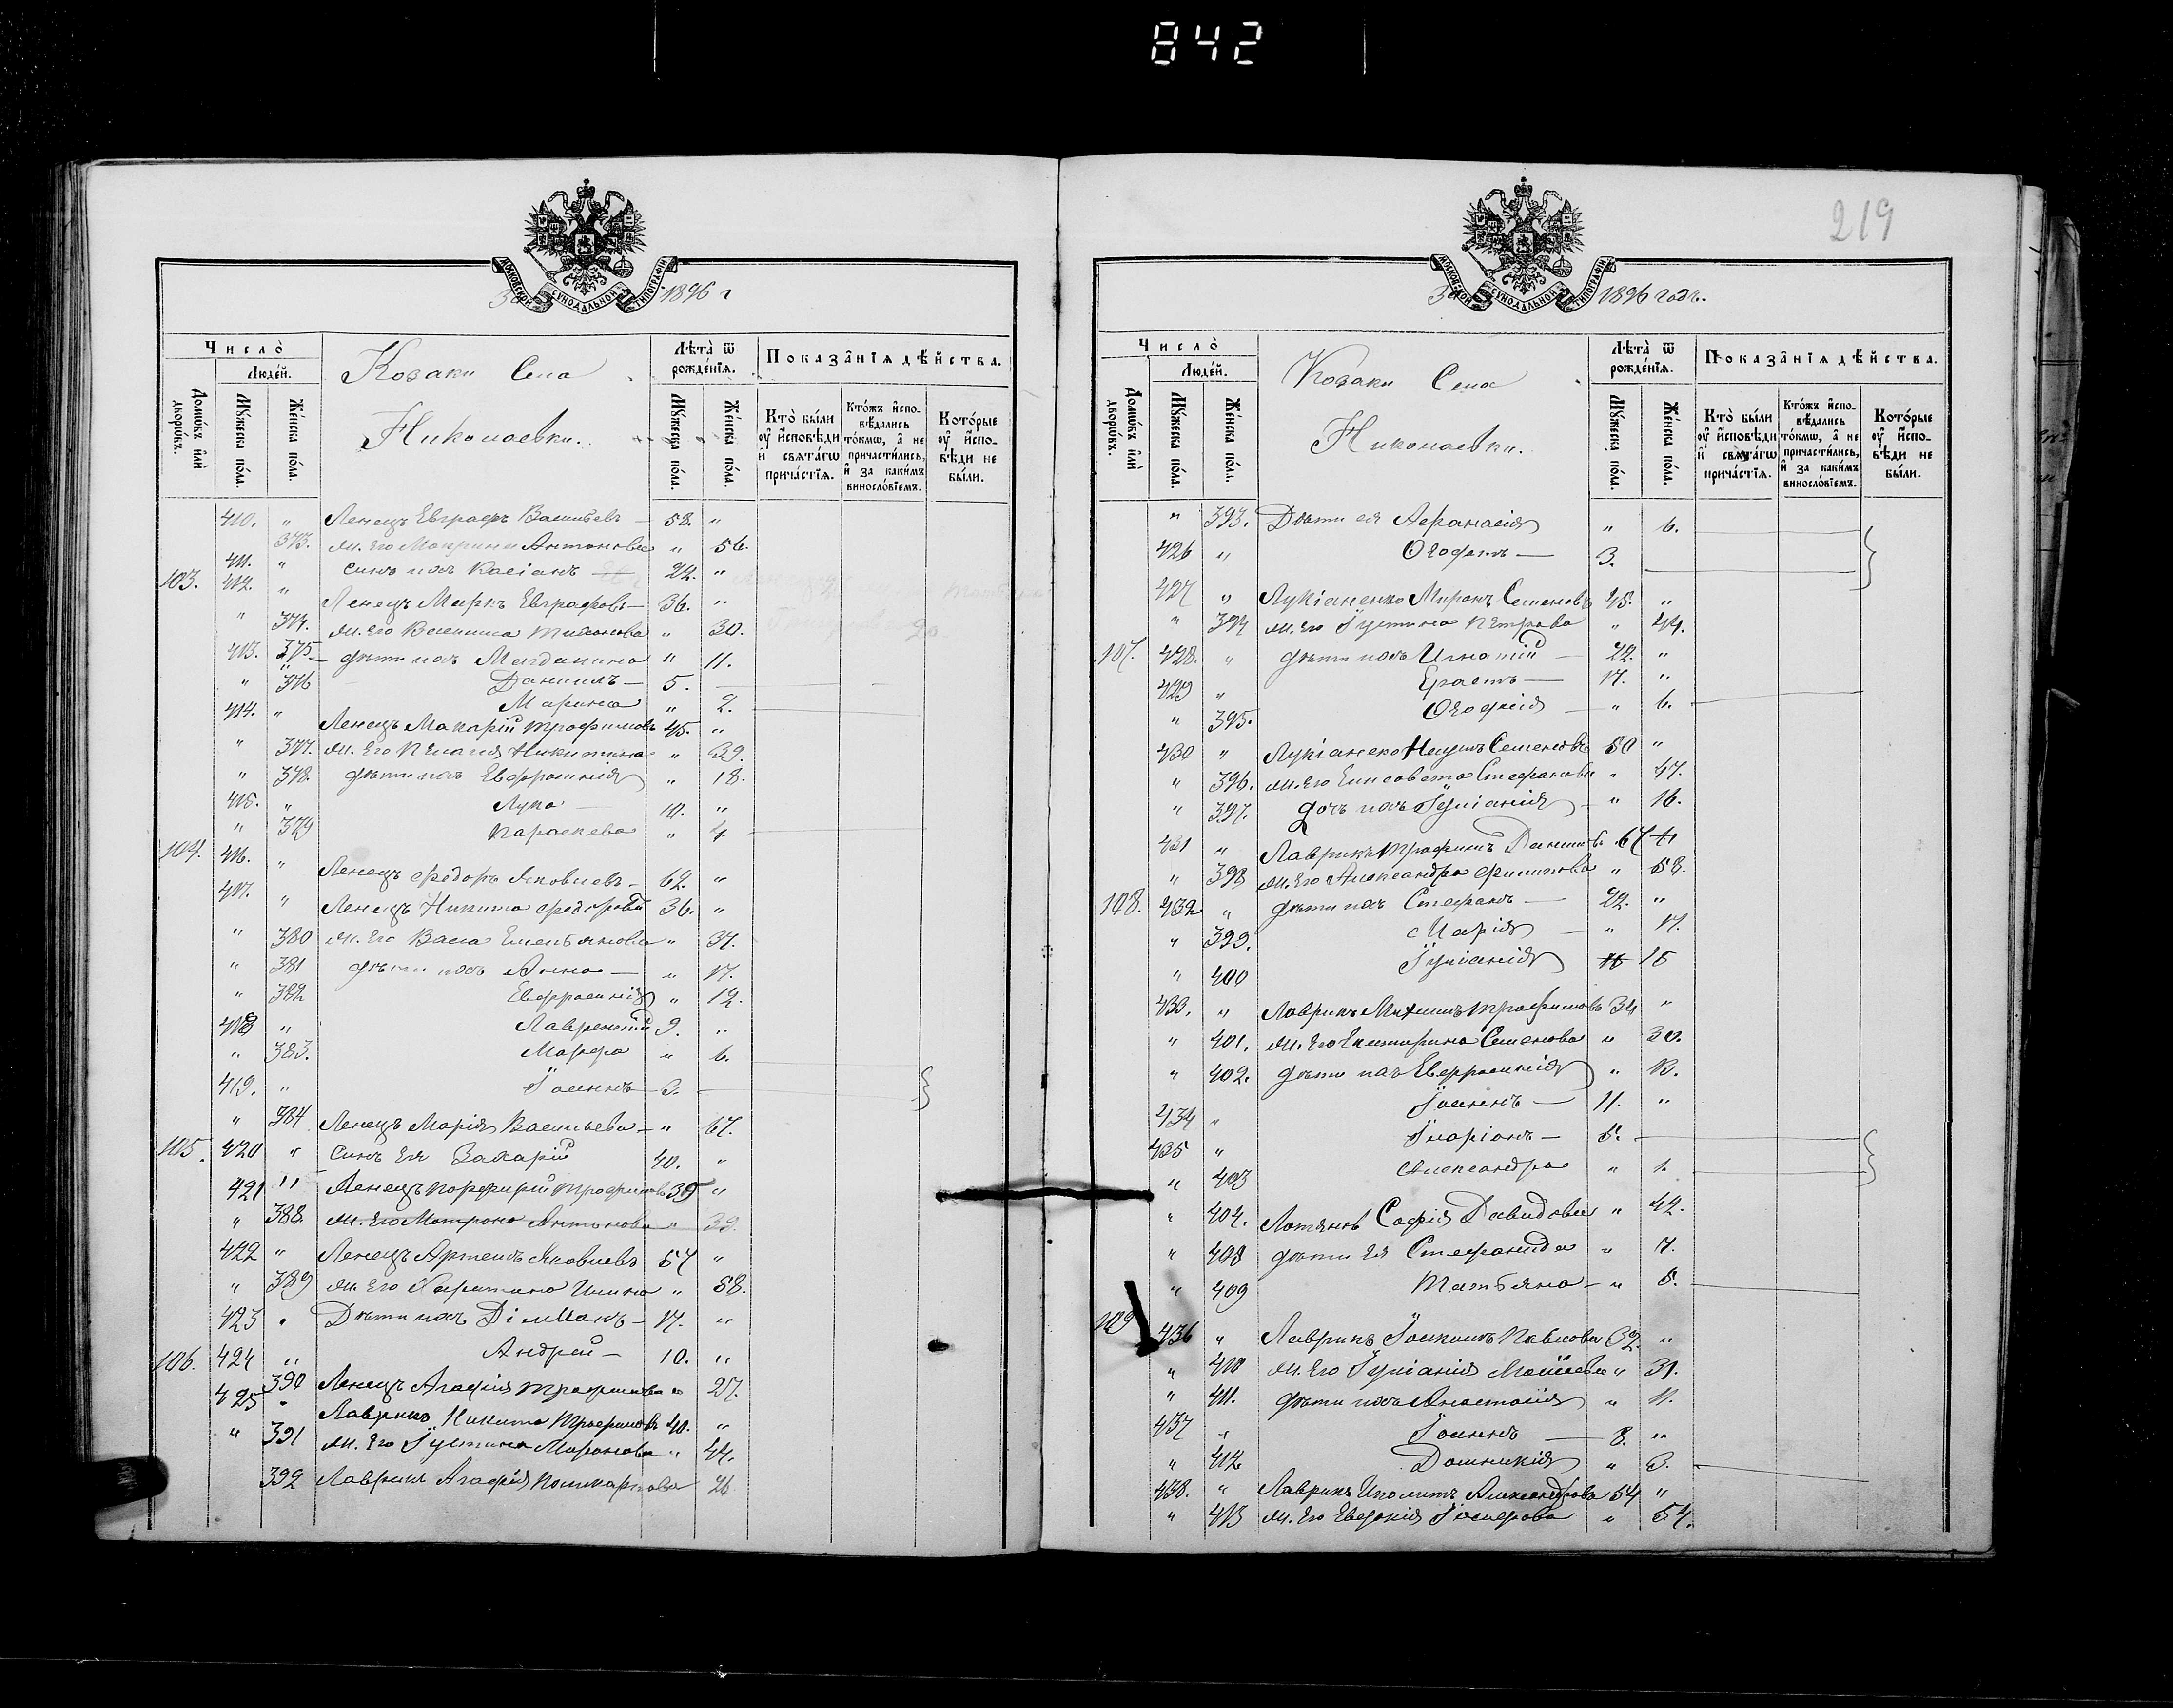 842
МОСКОВСКОЙ СУНОДАЛЬНОЙ ТИПОГРАФІИ
За 1896 г
Число̀
Люде́й.
Домѡ́въ и҆лѝ дворѡ́въ.
Мꙋ́жеска по́ла.
Же́нска по́ла.
Козаки Села
Николаевки.
Лѣ́та ѿ рожде́нїѧ.
Мꙋ́жеска по́ла.
Же́нска по́ла.
Показа̂нїѧ дѣ́йства.
Кто̀ бы́ли ᲂу҆ и҆́сповѣди и҆ свѧта́гѡ прича́стїѧ.
Кто́жъ и҆спо-вѣ́дались то́кмѡ, а҆ не причасти́лись, и҆ за каки́мъ винослові́емъ.
Кото́рые ᲂу҆ и҆́спо-вѣди не бы́ли.
410. " Ленецъ Евграфъ Васильевъ — 58. "
373. ж. его Маврина Антонова " 56.
411. " сынъ ихъ Касіанъ 22. "
103. 412. " Ленецъ Маркъ Евграфовъ — 36. "
" 374. ж. его Василиса Тихонова " 30.
413. 375 дѣти ихъ Магдалина " 11.
" 376 Даніилъ — 5.
414. " Марина " 2.
Ленецъ Макарій Трофимовъ 45. "
" 377. ж. его Пелагія Никитина " 39.
" 378. дѣти ихъ Евфросинія " 18.
415. " Лука — 10. "
" 379 Параскева " 4
104. 416. " Ленецъ Федоръ Яковлевъ — 62. "
417. " Ленецъ Никита Федоровъ 36. "
" 380 ж. его Васса Емельянова " 37.
" 381 дѣти ихъ Анна — " 17.
" 382 Евфросинія " 12.
418 " Лаврентій 9. "
" 383. Марфа " 6.
419. " Іоаннъ — 3.
" 384 Ленецъ Марія Васильева — " 67.
105. 420 " сынъ ея Захарій 40. "
421 " Ленецъ Порфирій Трофимовъ 35 "
" 388. ж. его Матрона Антонова " 32.
422 " Ленецъ Артемъ Яковлевъ 57 "
" 389 ж. его Харитина Ильина " 58.
423 " Дѣти ихъ 17. "
106. 424 " Андрей — 10. "
390 Ленецъ Агафія Трофимова " 27.
425 " Лаврикъ Никита Трофимовъ 40. "
" 391 ж. его Іустина Миронова " 44.
392 Лаврикъ Агафія Поликарпова 26
219
МОСКОВСКОЙ СУНОДАЛЬНОЙ ТИПОГРАФІИ
За 1896 годъ.
Число̀
Люде́й.
Домѡ́въ и҆лѝ дворѡ́въ.
Мꙋ́жеска по́ла.
Же́нска по́ла.
Козаки Села
Николаевки.
Лѣ́та ѿ рожде́нїѧ.
Мꙋ́жеска по́ла.
Же́нска по́ла.
Показа̂нїѧ дѣ́йства.
Кто̀ бы́ли ᲂу҆ и҆́сповѣди и҆ свѧта́гѡ прича́стїѧ.
Кто́жъ и҆спо-вѣ́дались то́кмѡ, а҆ не причасти́лись, и҆ за каки́мъ винослові́емъ.
Кото́рые ᲂу҆ и҆́спо-вѣди не бы́ли.
" 393. Дѣти ея Афанасія " 6.
426 " Ѳеофанъ — 3.
427 " Лукіаненко Миронъ Семеновъ 45. "
" 394 ж. его Іустина Петрова " 44.
107. 428. " дѣти ихъ Игнатій — 22. "
429 " Ерастъ — 17. "
" 395. Ѳеофнія — " 6.
430 " Лукіаненко Наумъ Семеновъ 50 "
" 396. ж. его Елисавета Стефанова " 47.
" 397. дочь ихъ Іуліанія — " 16.
431 " Лаврикъ Трофимъ Даниловъ 67
" 398 ж. его Александра Филипова " 58.
108. 432 " дѣти ихъ Стефанъ — 22. "
" 399. Марія — " 17.
" 400 Іуліанія 15
433. " Лаврикъ Михаилъ Трофимовъ 34 "
" 401. ж. его Екатерина Семенова " 30.
" 402. дѣти ихъ Евфросинія " 13.
434 " Іоаннъ — 11. "
435 " Иларіонъ — 5.
" 403 Александра " 1.
" 404. Софія Давидова " 42.
" 408 дѣти ея Стефанида " 7.
" 409 Татьяна — " 5.
109 436 " Лаврикъ Іоакимъ Павловъ 32. "
" 410 ж. его Іуліанія Моисеева " 31.
" 411. дѣти ихъ Анастасія " 11.
437 " Іоаннъ — 8. "
" 412 Домникія " 3.
438. " Лаврикъ Иполитъ Александровъ 54 "
" 413 ж. его Евдокія Іосифова " 54.